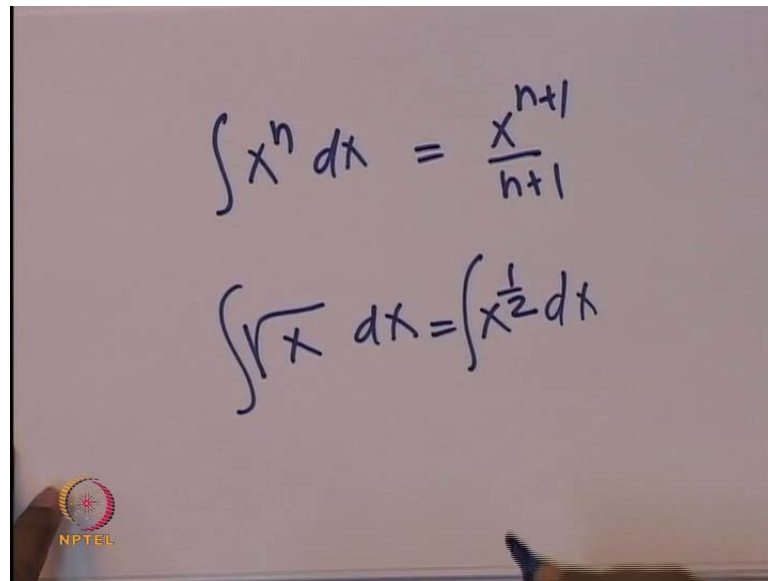 ∫ xⁿ dx = xⁿ⁺¹/n+1
∫ √x dx = ∫ x^½ dx
NPTEL